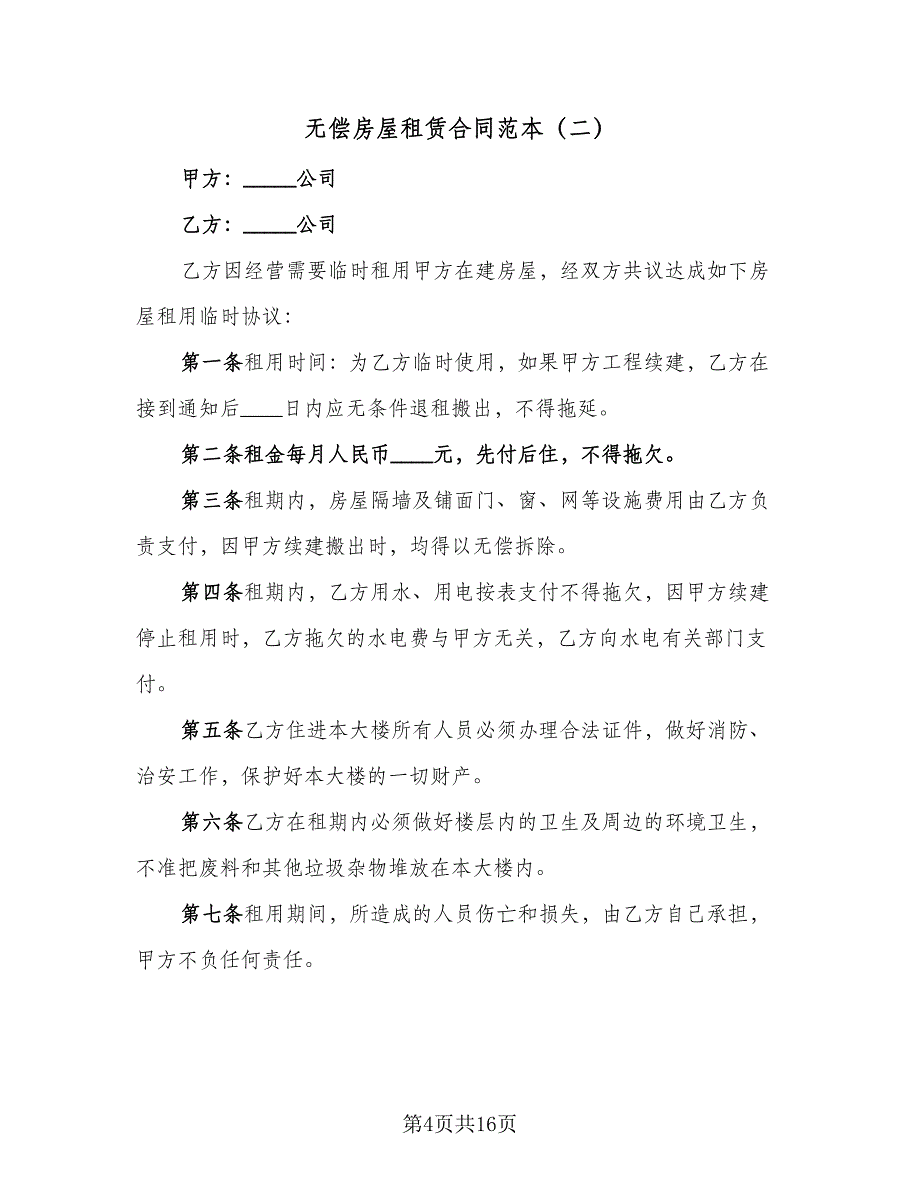 无偿房屋租赁合同范本（二）
甲方：_____公司
乙方：_____公司
乙方因经营需要临时租用甲方在建房屋，经双方共议达成如下房
屋租用临时协议：
第一条租用时间：为乙方临时使用，如果甲方工程续建，乙方在
接到通知后____日内应无条件退租搬出，不得拖延。
第二条租金每月人民币____元，先付后住，不得拖欠。
第三条租期内，房屋隔墙及铺面门、窗、网等设施费用由乙方负
责支付，因甲方续建搬出时，均得以无偿拆除。
第四条租期内，乙方用水、用电按表支付不得拖欠，因甲方续建
停止租用时，乙方拖欠的水电费与甲方无关，乙方向水电有关部门支
付。
第五条乙方住进本大楼所有人员必须办理合法证件，做好消防、
治安工作，保护好本大楼的一切财产。
第六条乙方在租期内必须做好楼层内的卫生及周边的环境卫生，
不准把废料和其他垃圾杂物堆放在本大楼内。
第七条租用期间，所造成的人员伤亡和损失，由乙方自己承担，
甲方不负任何责任。
第4页共16页